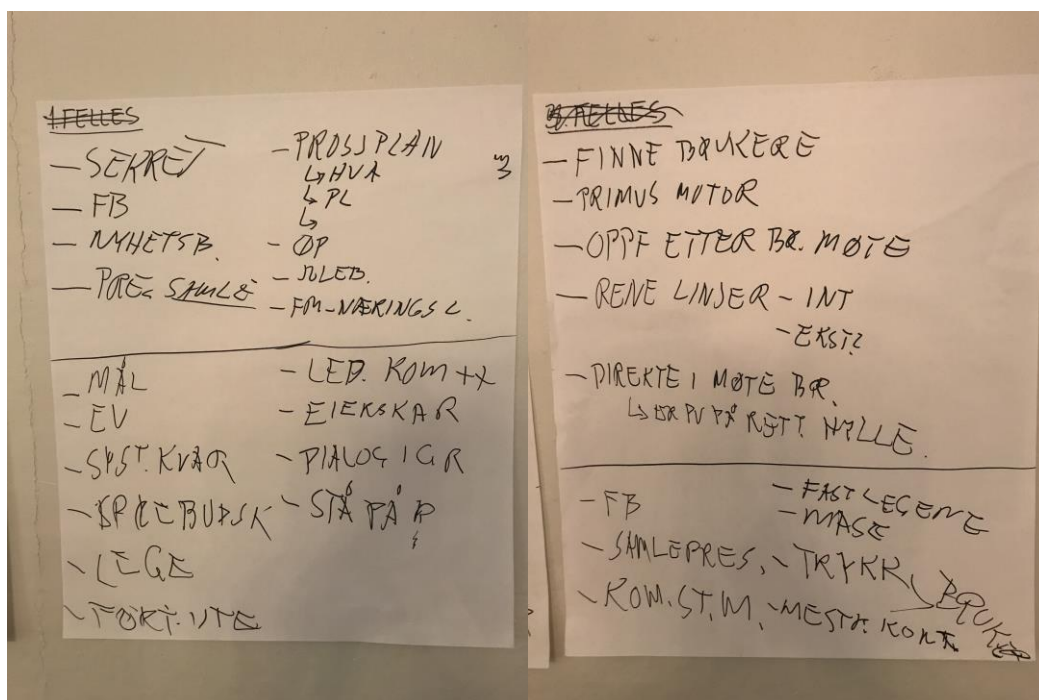 1. FELLES
— SEKRET
— FB
— NYHETSB.
— PRES. SAMLE
— PROSJPLAN
↳ HVA
↳ PL
↳
- ØP
- FM-NÆRINGSL.
— MÅL
— EV
— SYST. KVAR
— LEGE
- LED. KOM ++
- EIERSKAP
- DIALOG I GR
- STÅ PÅ
FELLES
— FINNE BRUKERE
— PRIMUS MOTOR
— OPPF ETTER BR. MØTE
— RENE LINJER - INT
- EKST?
— DIREKTE I MØTE BR.
↳ PÅ RETT HYLLE.
- FB
- SAMLEPRES.
- KOM. ST. M.
- FASTLEGENE
- MASE
- TRYKK
- MESTR. KONT.
BRUK